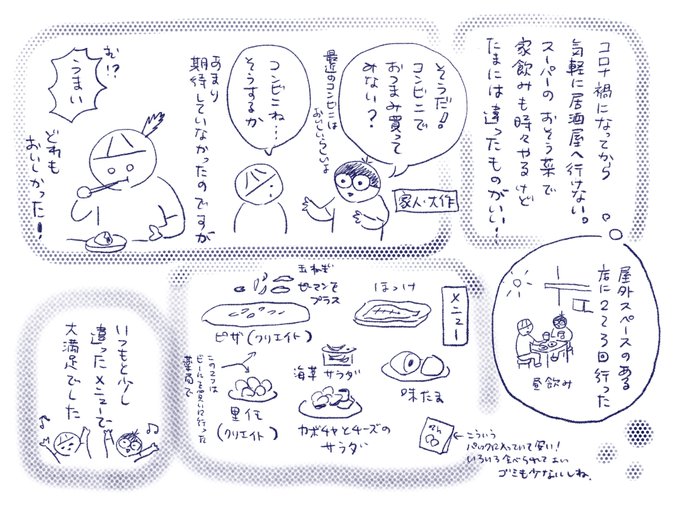 コロナ禍になってから
気軽に居酒屋へ行けない。
スーパーのおそう菜で
家飲みも時々やるけど
たまには違ったものがいい！
屋外スペースのある
店に2〜3回行った
昼飲み
そうだ！
コンビニで
おつまみ買って
みない？
家人・大作
最近のコンビニは
おいしいらしいよ
コンビニね…
そうするか
あまり
期待していなかったのですが
お!?
うまい
どれも
おいしかった！
メニュー
ほっけ
玉ねぎ
ピーマンを
プラス
ピザ(クリエイト)
味たま
海草サラダ
里イモ
(クリエイト)
カボチャとチーズの
サラダ
この2つは
ビールを買いに行った
薬局で
←こういう
パックに入っていて安い！
いろいろ食べられてよい
ゴミも少ないしね。
いつもと少し
違ったメニューで
大満足でした